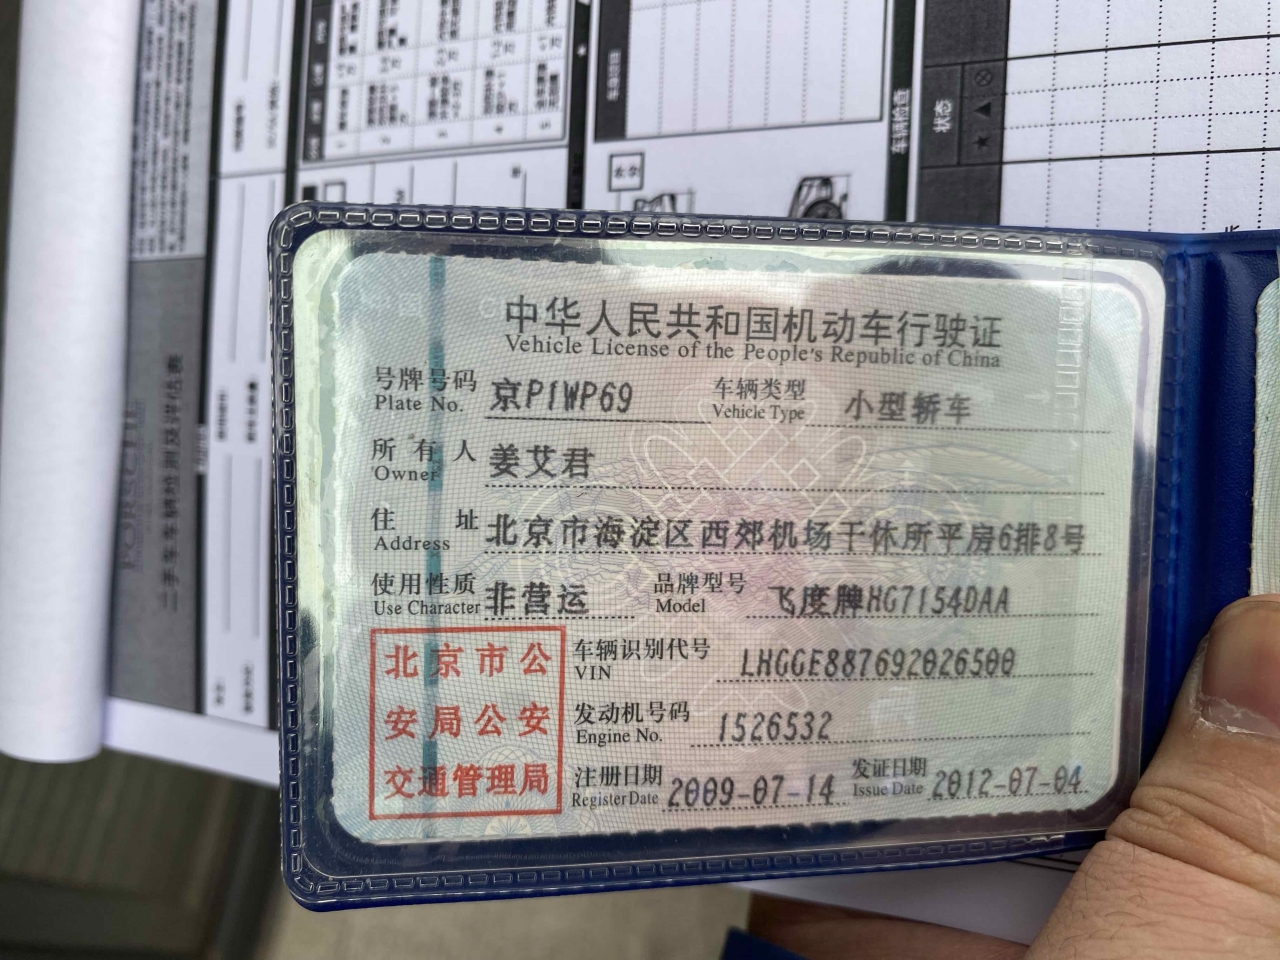 车辆检查
状态
中华人民共和国机动车行驶证
Vehicle License of the People's Republic of China
号牌号码 京P1WP69 车辆类型 小型轿车
Plate No. Vehicle Type
所有人 姜艾君
Owner
住址 北京市海淀区西郊机场干休所平房6排8号
Address
使用性质 非营运 品牌型号 飞度牌HG7154DAA
Use Character Model
北京市公
安局公安
交通管理局
车辆识别代号 LHGGE887692026500
VIN
发动机号码 1526532
Engine No.
注册日期 2009-07-14 发证日期 2012-07-04
Register Date Issue Date